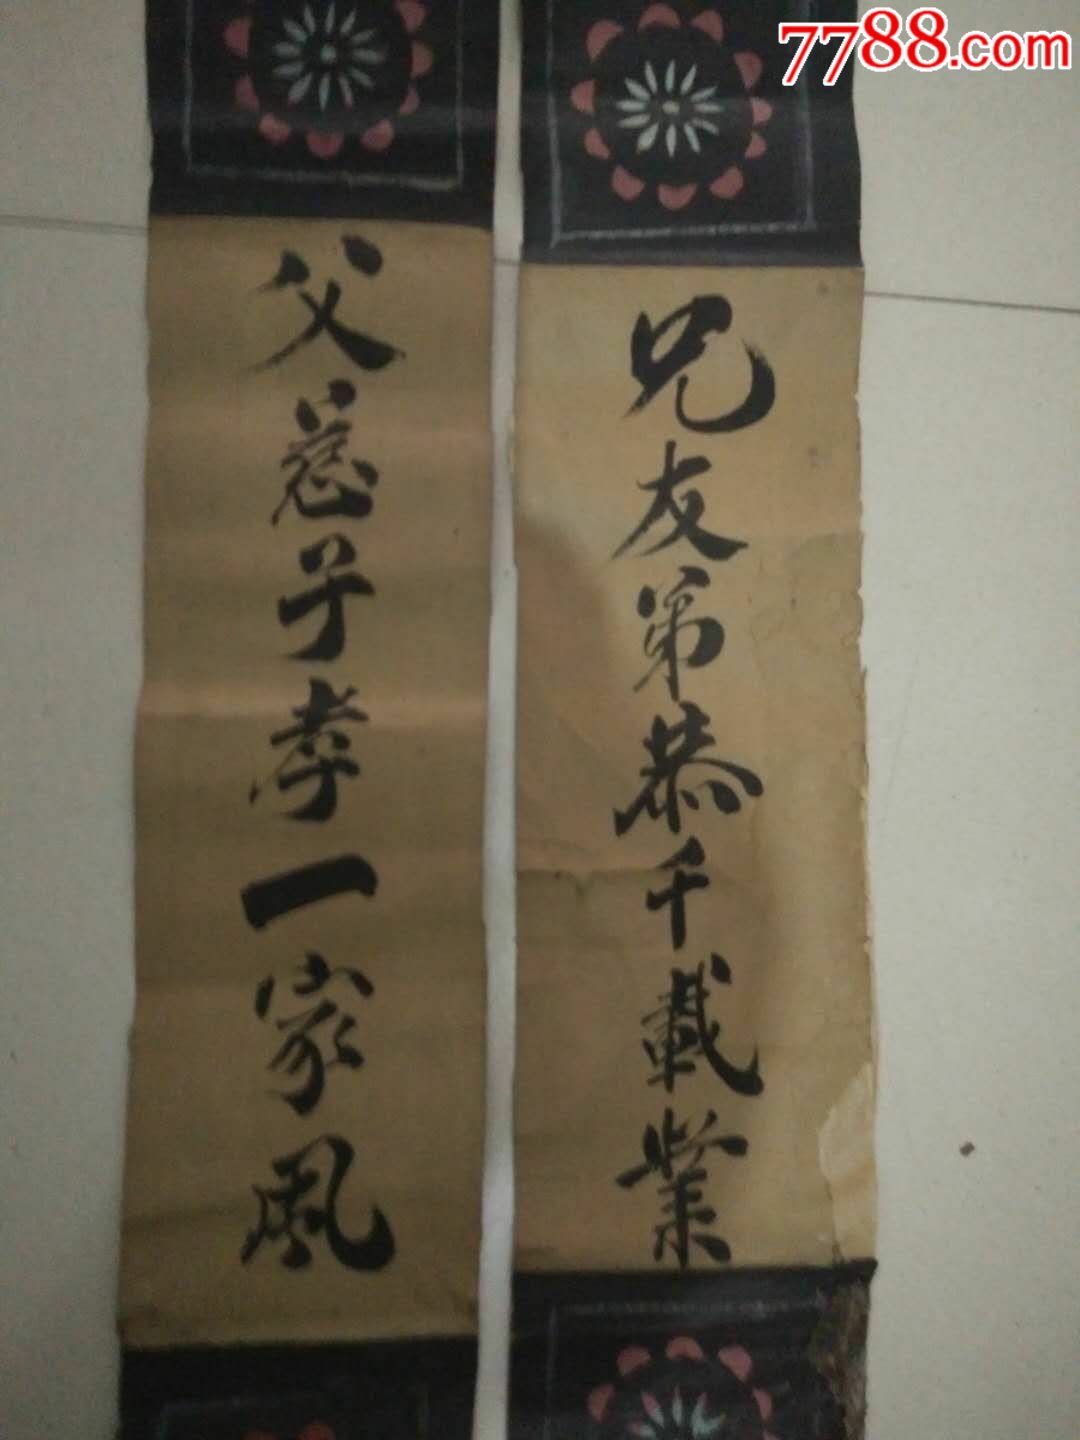 7788.com
兄友弟恭千載業
父慈子孝一家風